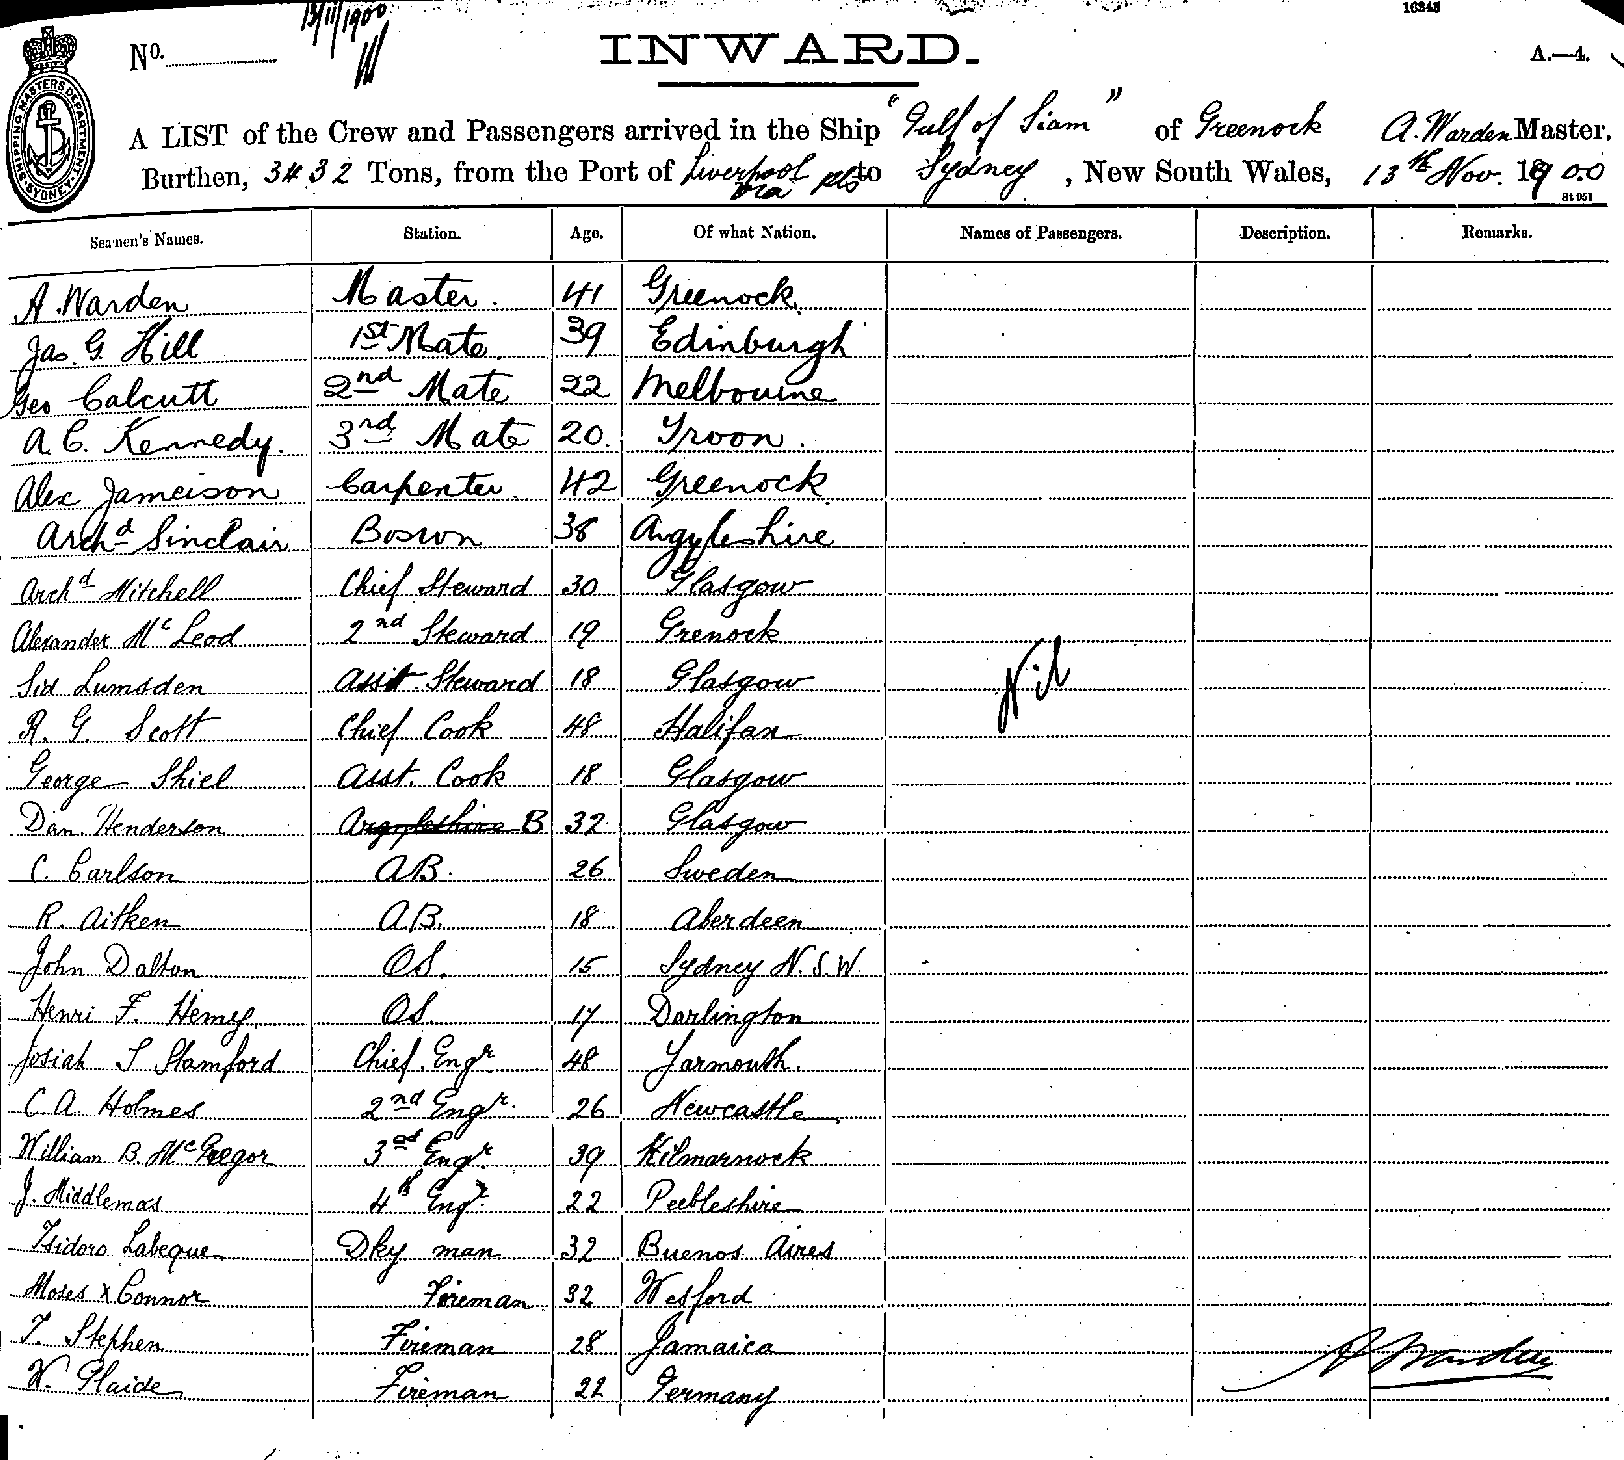 13/11/1900
16248
No.
INWARD.
A.—4.
SHIPPING MASTERS DEPARTMENT SYDNEY
A LIST of the Crew and Passengers arrived in the Ship "Gulf of Siam" of Greenock A. Warden Master,
Burthen, 3432 Tons, from the Port of Liverpool via pts to Sydney, New South Wales, 13th Nov. 1900
St 951
Seamen's Names. Station. Age. Of what Nation. Names of Passengers. Description. Remarks.
A. Warden Master. 41 Greenock
Jas. G. Hill 1st Mate. 39 Edinburgh
Geo Calcutt 2nd Mate 22 Melbourne
A. C. Kennedy. 3rd Mate 20. Troon.
Alex Jameison Carpenter. 42 Greenock
Archd Sinclair Boswn 38 Argyleshire
Archd Mitchell Chief Steward 30 Glasgow
Alexander McLeod 2nd Steward 19 Grenock
Sid Lumsden Asst. Steward 18 Glasgow
Nil
R. G. Scott Chief Cook 48 Halifax
George Shiel Asst. Cook 18 Glasgow
Dan. Henderson Argyleshire B 32 Glasgow
C. Carlson AB. 26 Sweden
R. Aitken A.B. 18 Aberdeen
John Dalton OS. 15 Sydney N.S.W.
Henri F. Hemey. OS. 17 Darlington
Josiah S Stamford Chief. Engr 48 Yarmouth.
C A Holmes 2nd Engr. 26 Newcastle
William B. McGregor 3rd Engr. 39 Kilmarnock
J. Middlemas 4th Engr. 22 Peebleshire
Isidoro Labeque Dky man 32 Buenos Aires
Moses x Connor Fireman 32 Wexford
T. Stephen Fireman 28 Jamaica
A Warden
W. Plaide Fireman 22 Germany